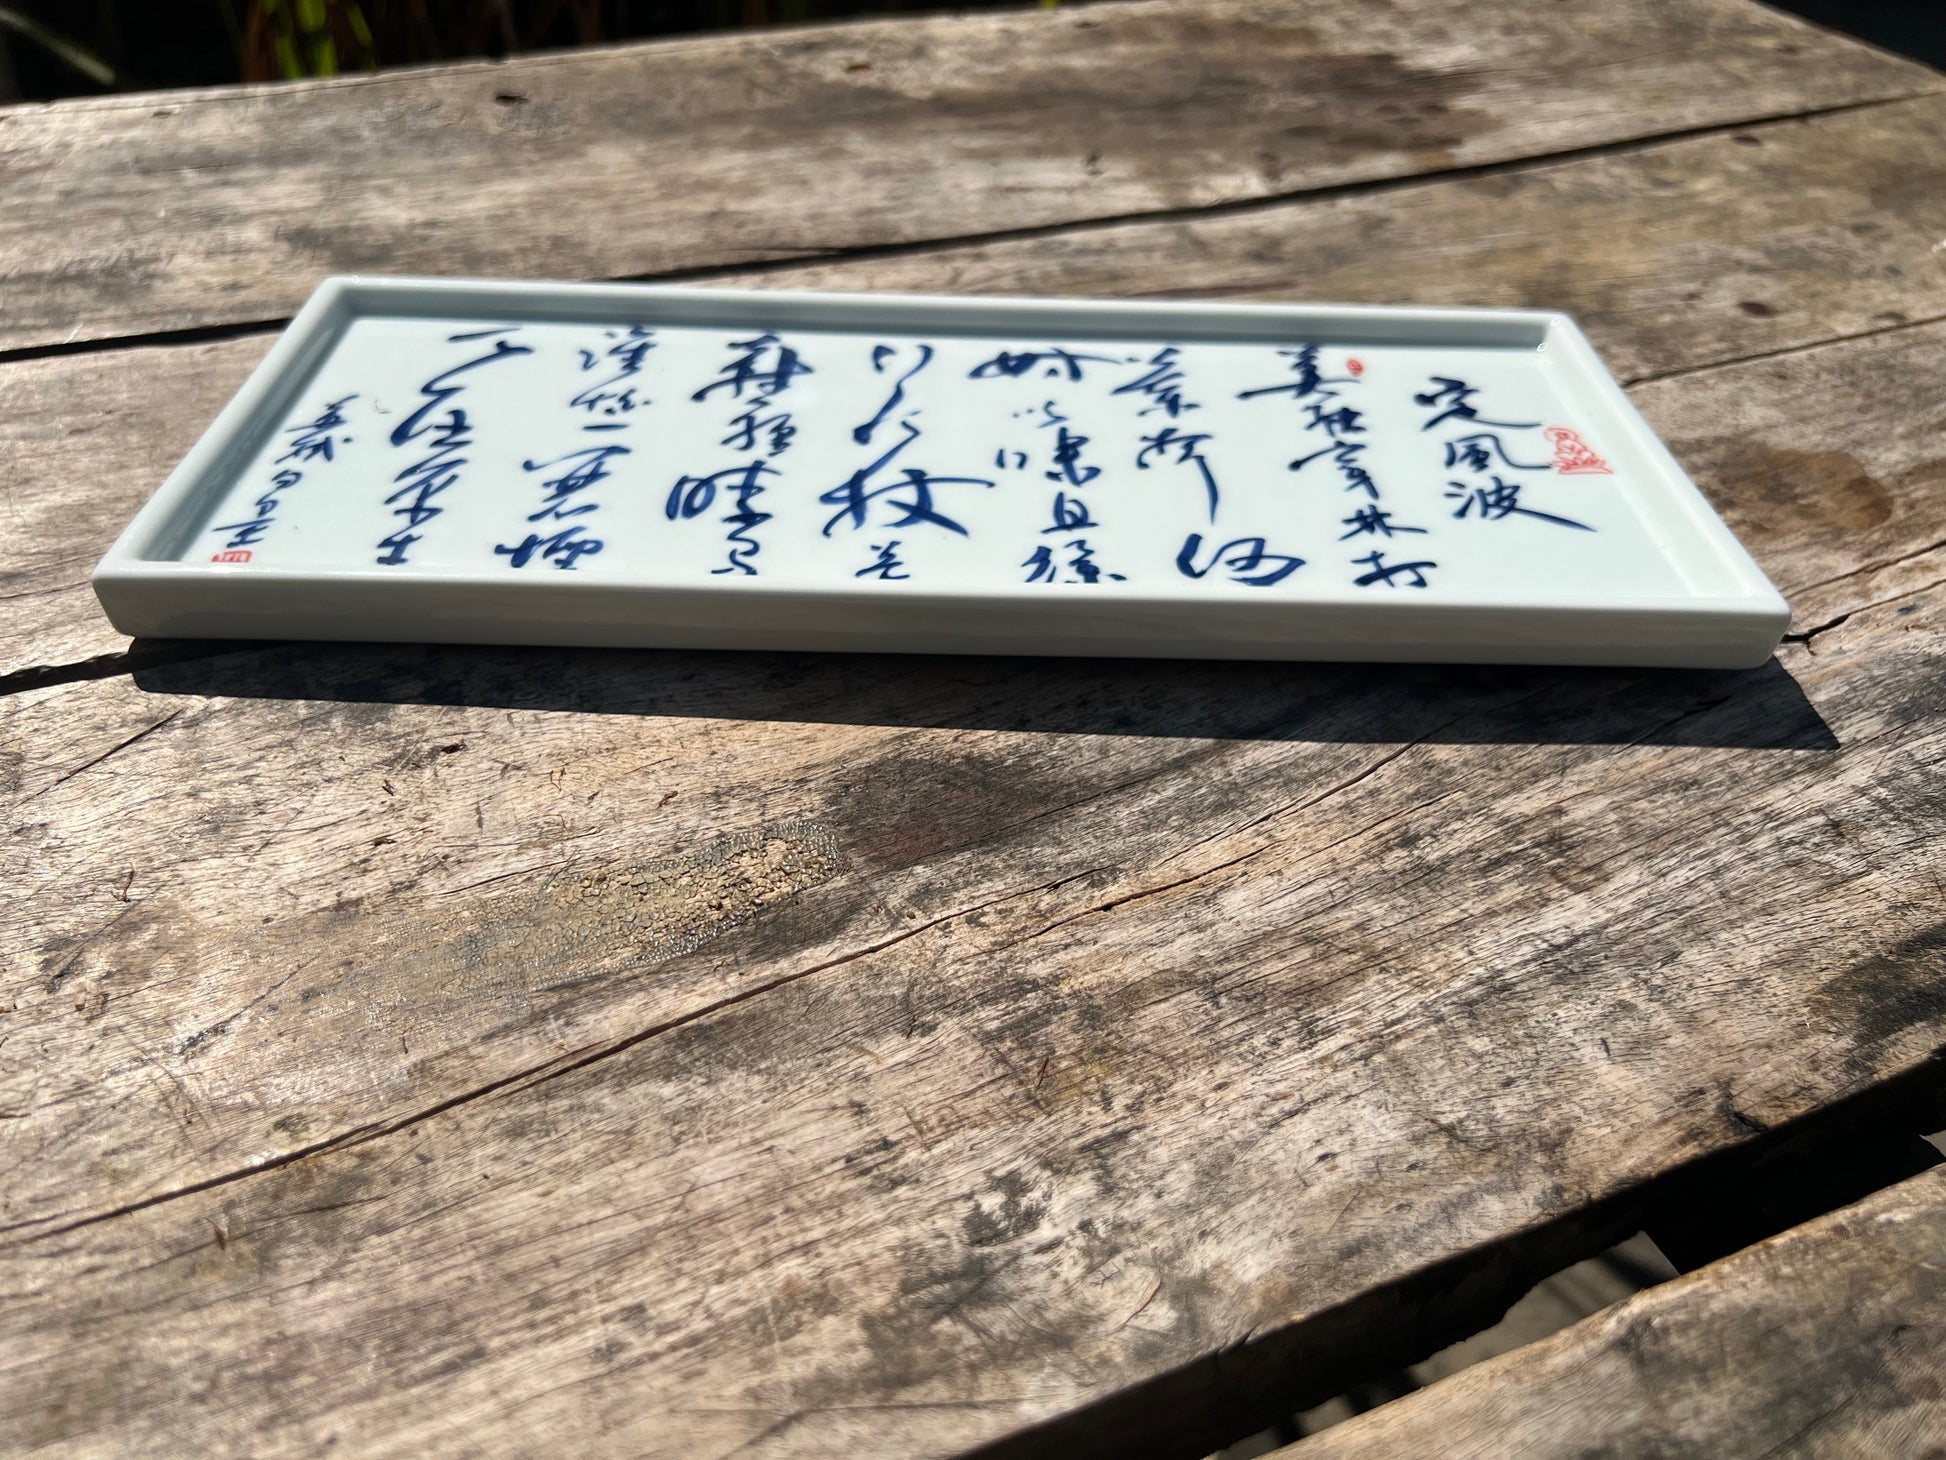 定風波
莫聽穿林打
葉聲何
妨吟嘯且徐
行竹杖芒
鞋輕勝馬
誰怕一蓑煙
雨任平生